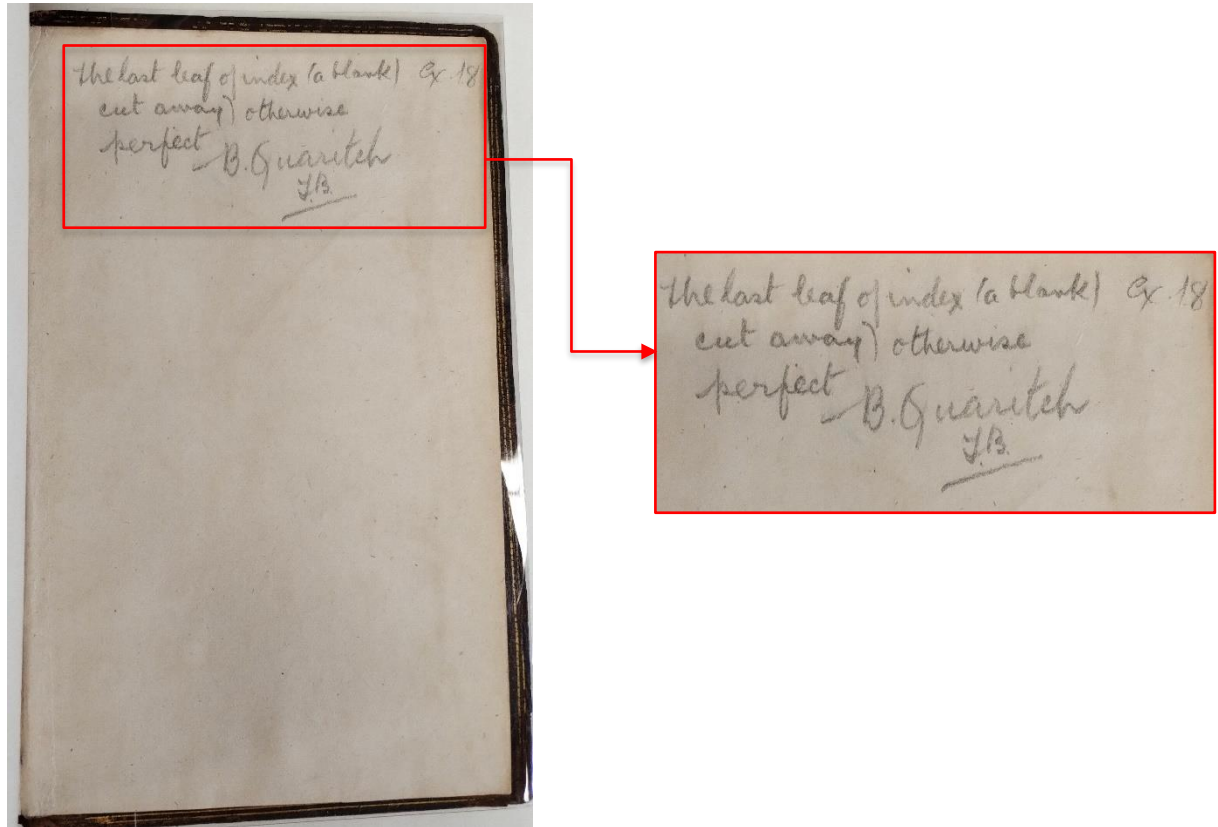 The last leaf of index (a blank) 18
cut away) otherwise
perfect
– B. Quaritch
The last leaf of index (a blank) 18
cut away) otherwise
perfect
– B. Quaritch